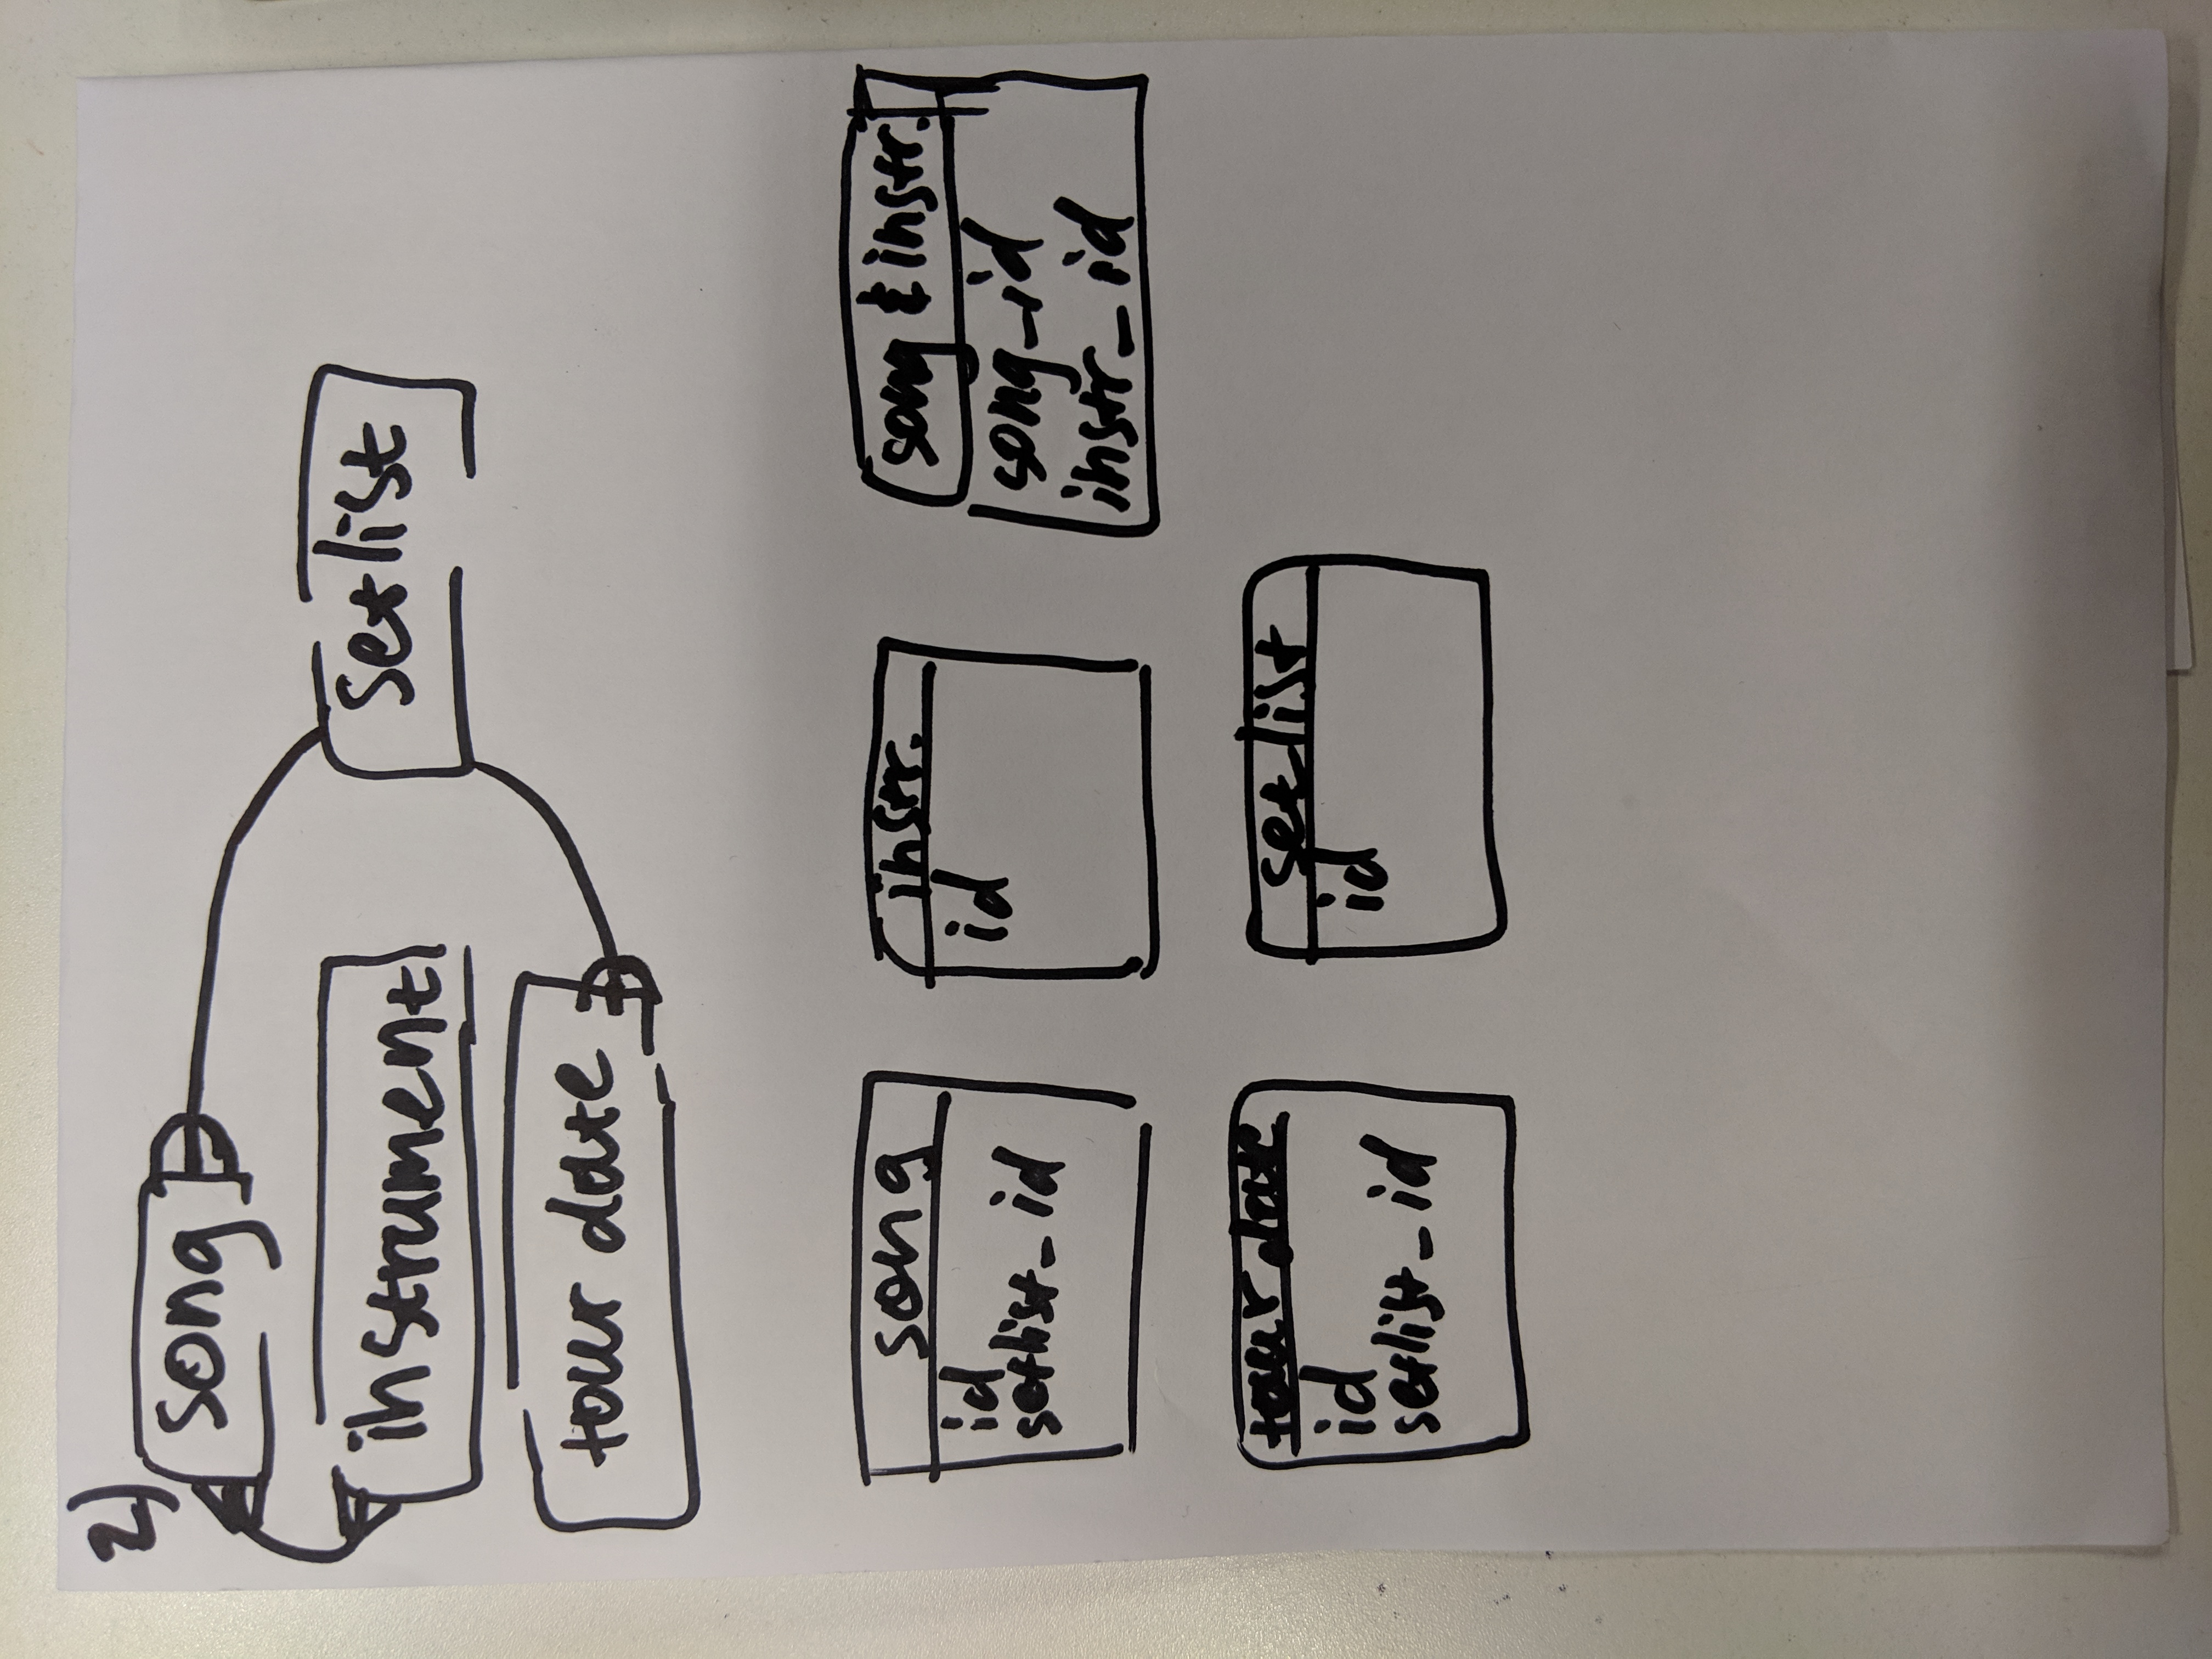 2)
song
instrument
setlist
tour date
song
id
setlist_id
instr.
id
song & instr.
song_id
instr_id
tour date
id
setlist_id
setlist
id